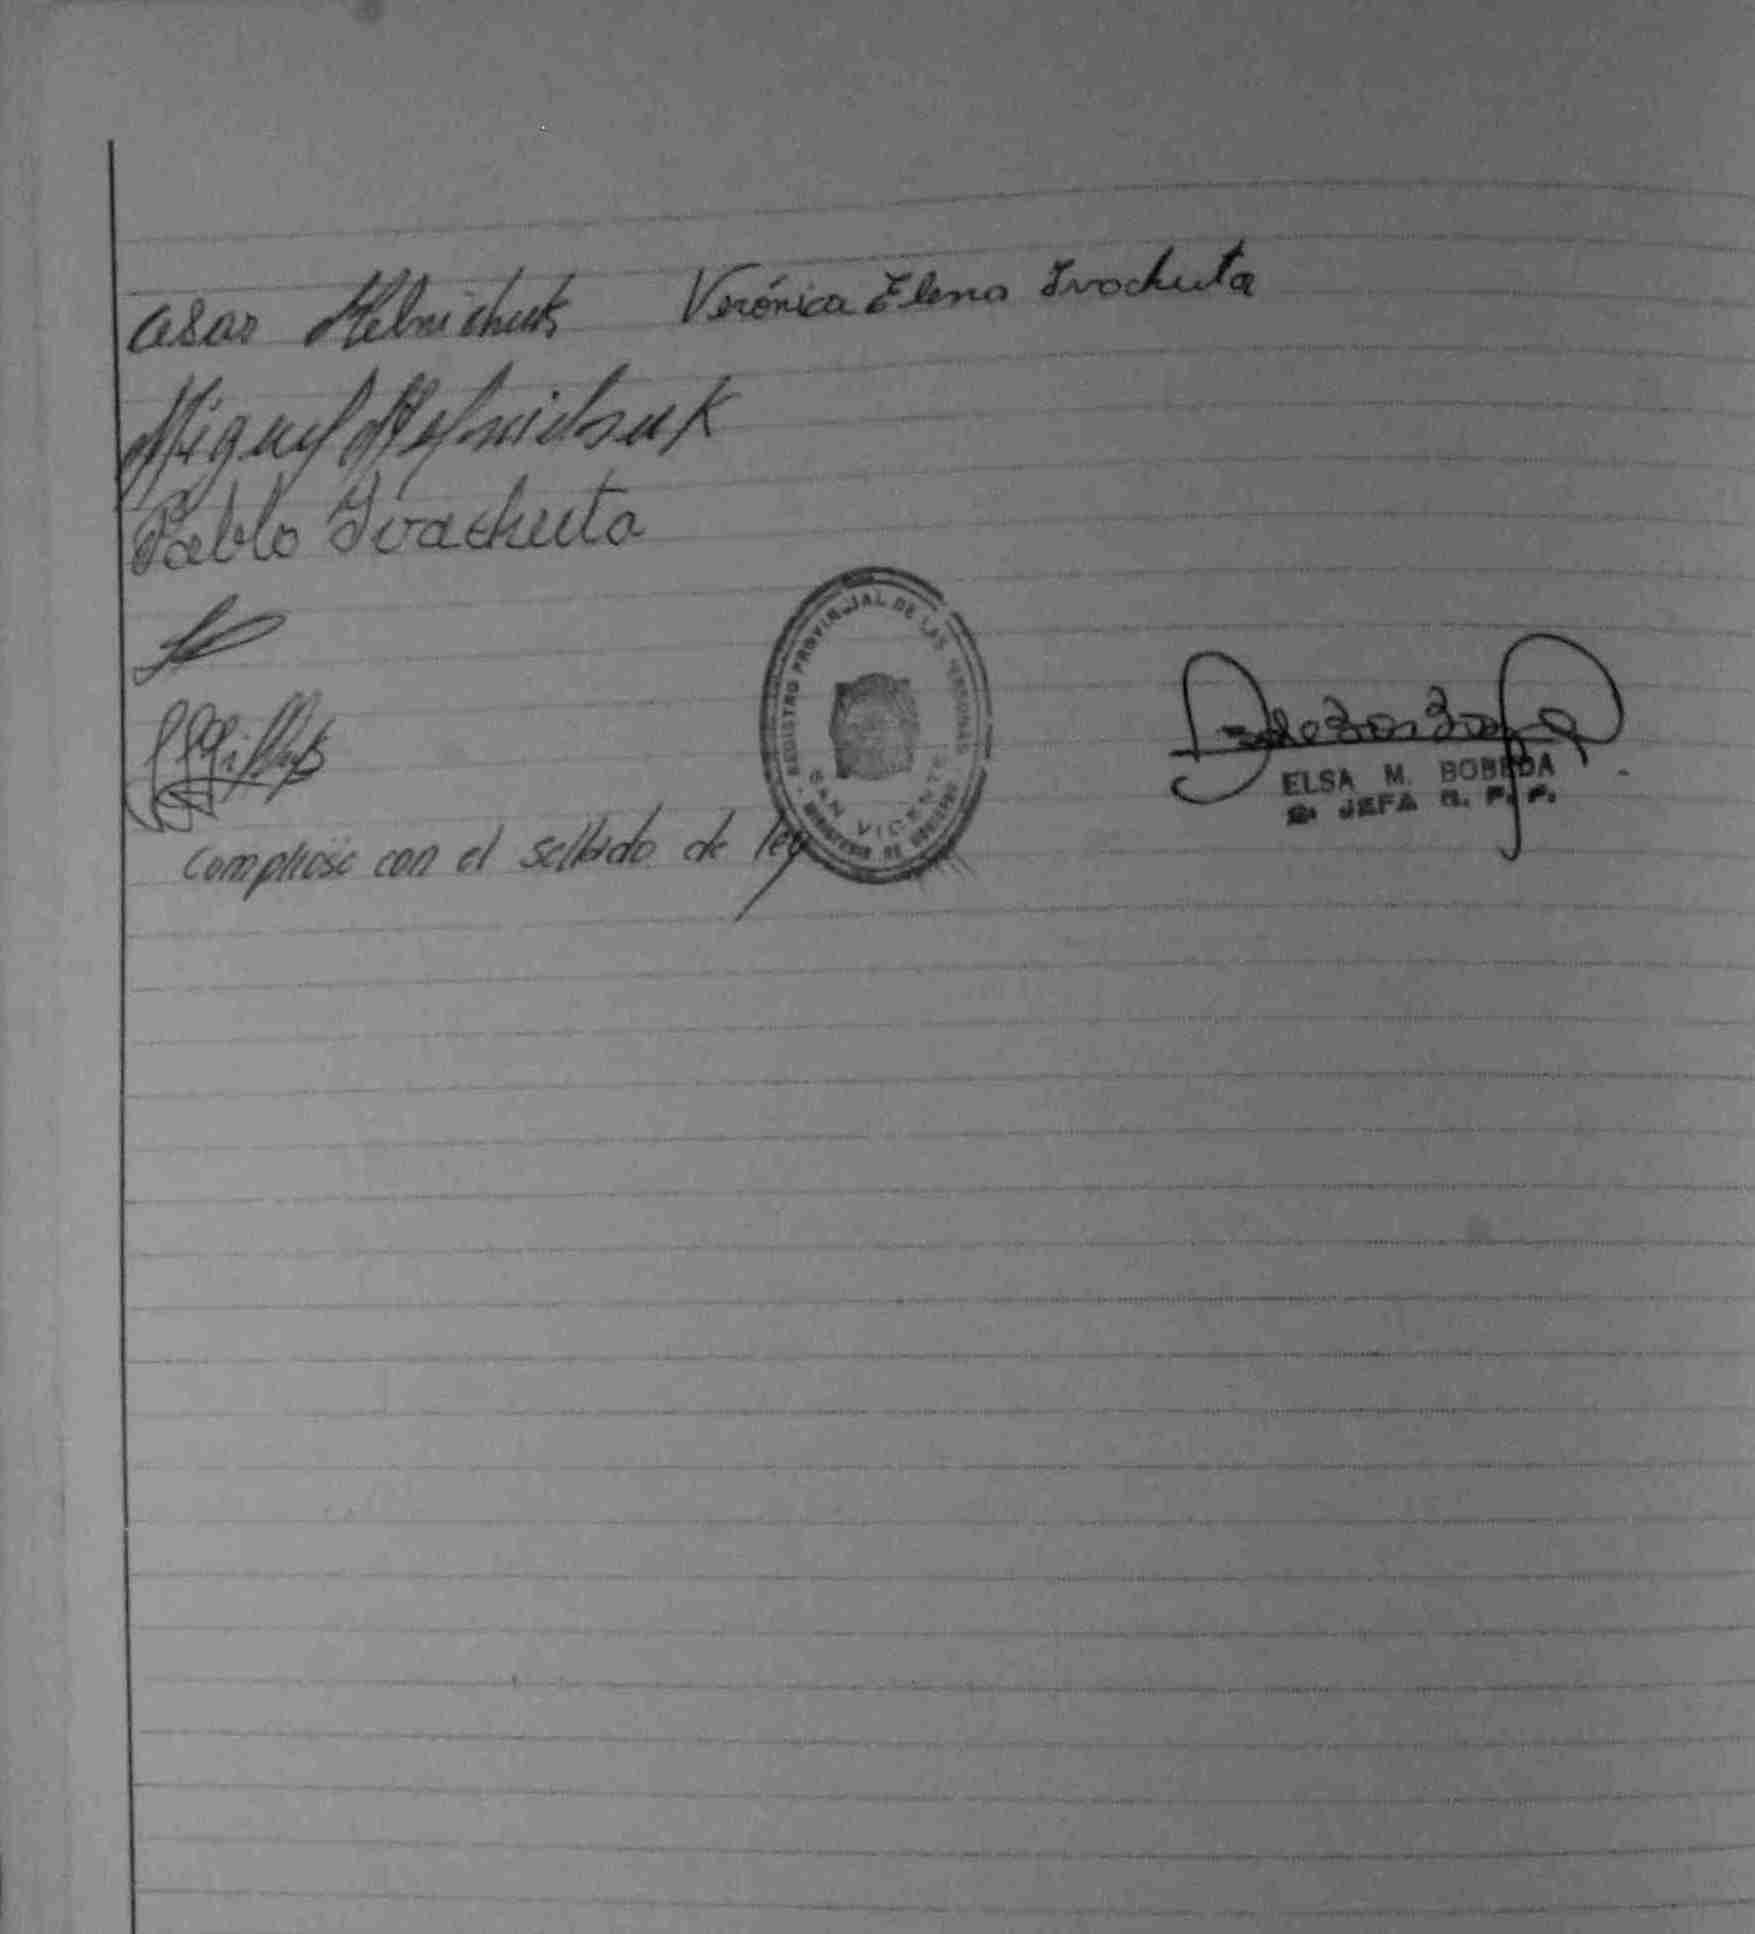 Cesar Melnichuk Verónica Elena Ivachuta
Miguel Melnichuk
Pablo Ivachuta
REGISTRO PROVINCIAL DE LAS PERSONAS
SAN VICENTE
MINISTERIO DE GOBIERNO
ELSA M. BOBEDA
JEFA R. P. P.
Cumpliose con el sellado de ley